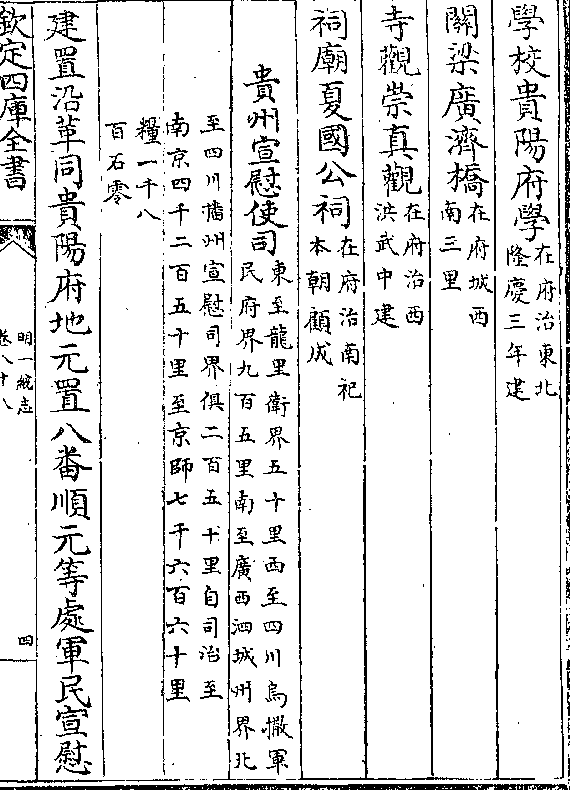 學校貴陽府學在府治東北隆慶三年建
關梁廣濟橋在府城西南三里
寺觀崇真觀在府治西洪武中建
祠廟夏國公祠在府治南祀本朝顧成
貴州宣慰使司東至龍里衛界五十里西至四川烏撒軍民府界九百五里南至廣西泗城州界北
至四川播州宣慰司界俱二百五十里自司治至南京四千二百五十里至京師七千六百六十里
糧一千八百石零
建置沿革同貴陽府地元置八番順元等處軍民宣慰
欽定四庫全書
明一統志
卷八十八
四